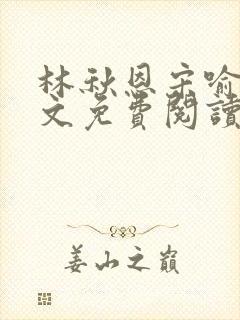 林秋恩宋喻
文免費閱讀
姜山之巔